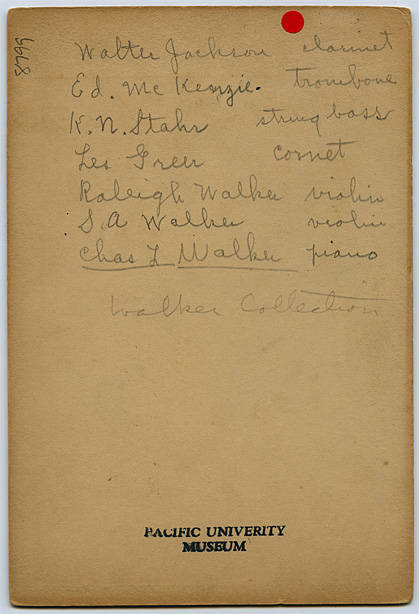 8995
Walter Jackson clarinet
Ed. Mc Kenzie. trombone
K. N. Stahr string bass
Les Green cornet
Raleigh Walker violin
S A Walker violin
Chas L Walker piano
Walker Collection
PACIFIC UNIVERITY
MUSEUM